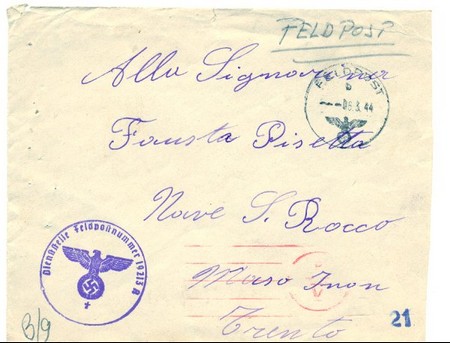 FELDPOST
FELDPOST
b
06.3.44
Alla Signora
Fausta Pisetta
Nave S. Rocco
Maso Inon
Trento
Dienststelle Feldpostnummer 19213 A
3/9
21